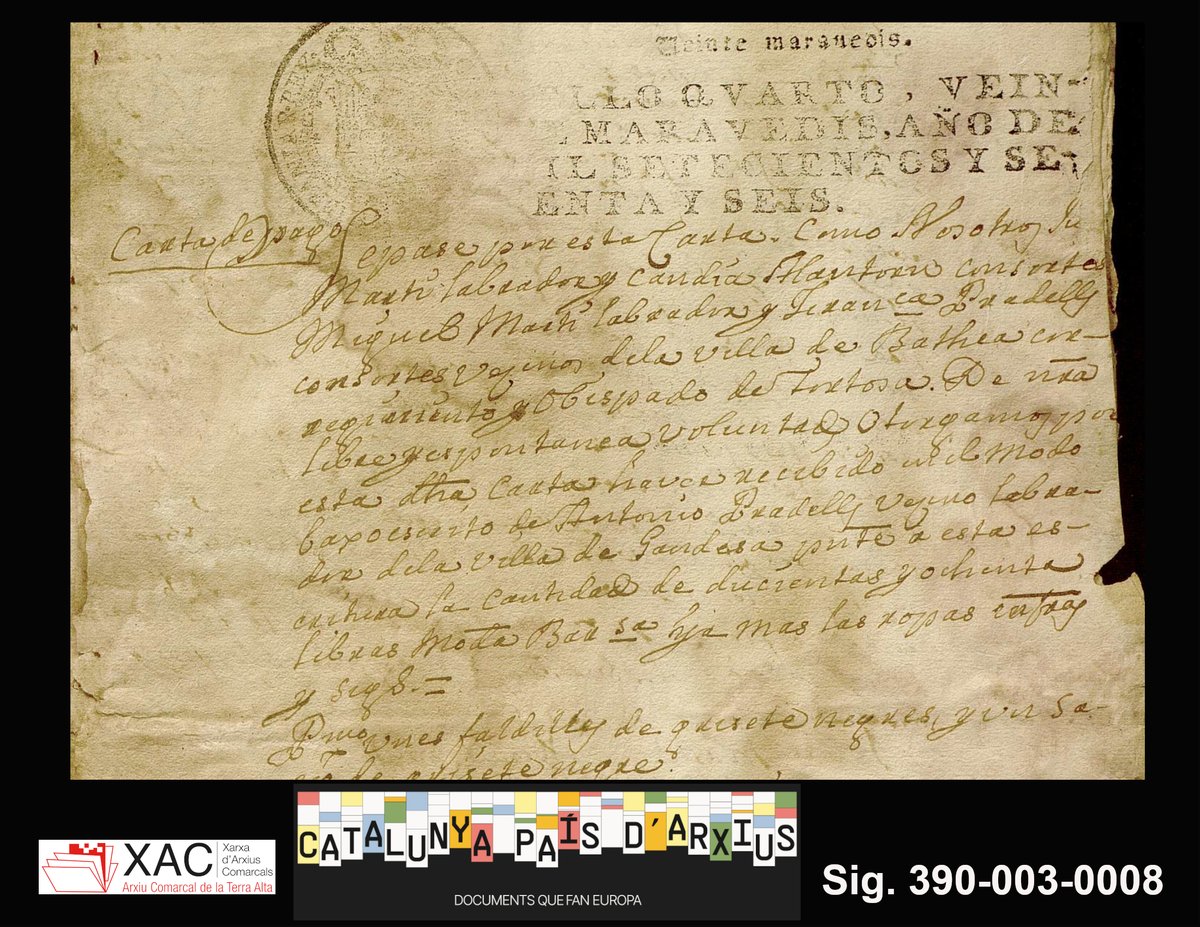 Veinte maravedis.
ELLO QVARTO, VEIN-
E MARAVEDIS, AÑO DE
IL SETECIENTOS Y SE-
ENTA Y SEIS.
Carta de pago
Sepase por esta Carta. Como Nosotros Ju
Marti labrador y Candia consortes
Miguel Marti labrador y Pradells
consortes vezinos dela villa de Bathea cor-
regimiento y Obispado de Tortosa. De nra
libre y espontanea voluntad Otorgamos por
esta dha Carta haver recibido en el Modo
baxoescrito de Antonio Pradells vezino labra-
dor dela villa de Gandesa pnte a esta es-
critura la cantidad de ducientas y ochenta
libras Moda Barsa y mas las ropas infras
y sigts.=
Pmo unes faldilles de grisete negres, y un sa-
de grisete negre.
XAC
Xarxa
d'Arxius
Comarcals
Arxiu Comarcal de la Terra Alta
CATALUNYA PAÍS D'ARXIUS
DOCUMENTS QUE FAN EUROPA
Sig. 390-003-0008